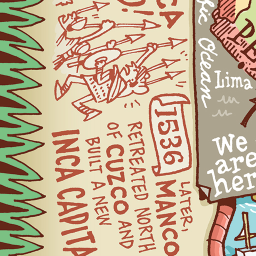 CA
1536
LATER,
MANCO
RETREATED NORTH
OF CUZCO AND
BUILT A NEW
INCA CAPITA
fic Ocean
Lima
PE
We
are
her